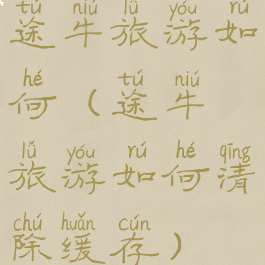 tú niú lǚ yóu rú
途牛旅游如
hé tú niú
何(途牛
lǚ yóu rú hé qīng
旅游如何清
chú huǎn cún
除缓存)